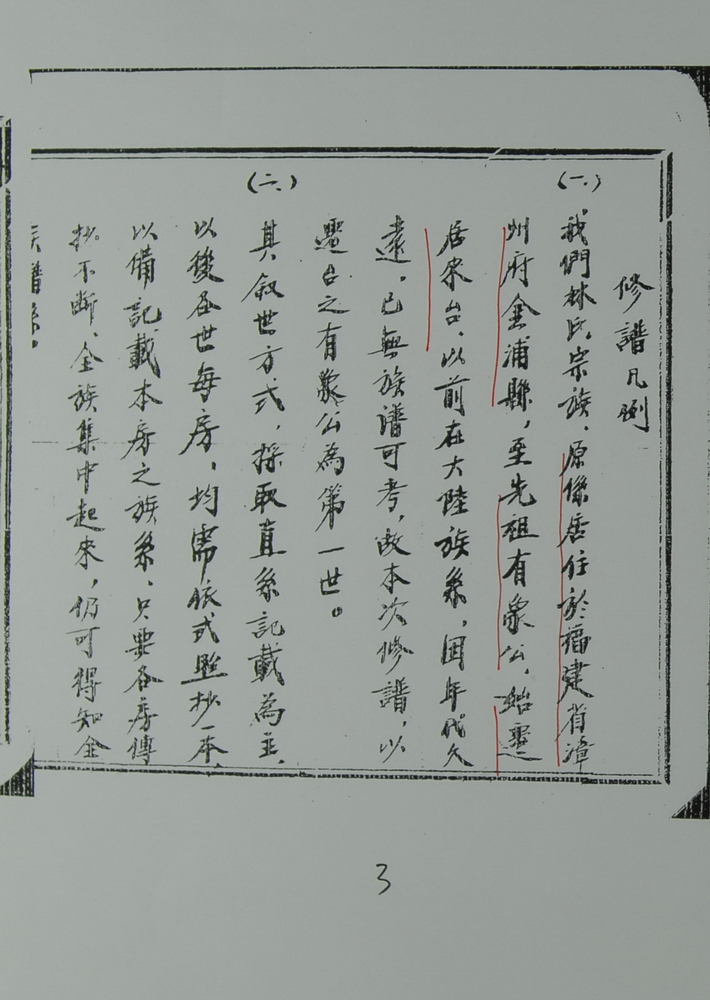 修譜凡例
(一)我們林氏宗族、原係居住於福建省漳
州府金浦縣，至先祖有象公，始遷
居來台，以前在大陸族系，因年代久
遠，已無族譜可考，故本次修譜，以
遷台之有象公為第一世。
(二)其叙世方式，採取直系記載為主、
以後各世每房，均需依式照抄一本、
以備記載本房之族系、只要各房傳
抄不斷、全族集中起來，仍可得知全
族譜系。
3